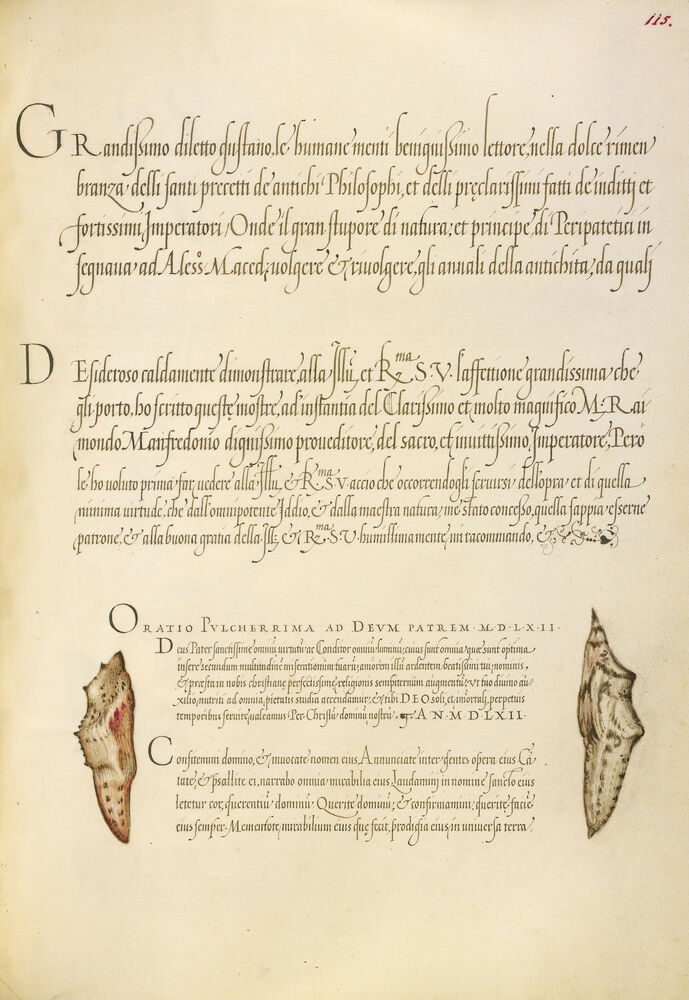 115.
GRandissimo diletto gustano, le humane menti benignissimo lettore, nella dolce rimen
branza delli santi precetti de antichi Philosophi, et delli pręclarissimi fatti de inditti et
fortissimi Imperatori, Onde il gran stupore di natura, et principe, di Peripatetici in
segnaua ad Aless. Maced, volgere & rivolgere, gli annali della antichita, da quali
DEsideroso caldamente dimonstrare, alla Illu, et Rma S. V. l'affettione grandissima che
gli porto, ho scritto queste nostre, ad instantia del Clarissimo et molto magnifico M. Rai
mondo Manfredonio dignissimo proueditore, del sacro, et inuittissimo Imperatore, Però
le ho voluto prima far, vedere alla Illu, & Rma S V. accio che occorrendogli seruirsi dell'opra et di quella
minima virtude, che dall'omnipotente Iddio, & dalla maestra natura, me stato concesso, quella sappia esserne
patrone, & alla buona gratia della Ill; & Rma S V. humillimamente, mi racommando, &
ORATIO PVLCHERRIMA AD DEVM PATREM · M · D · L · X · II ·
Deus Pater sanctissime omniū virtutū ac Conditor omniū luminū, cuius sunt omnia quę sunt optima
insere secundum multitudinē miserationum tuarū, amorem illū ardentem beatissimi tui nominis,
& pręsta in nobis christianę perfectissimę, religionis sempiternum augmentū, vt tuo diuino au-
xilio, nutriti ad omnia, pietatis studia accendamur, & tibi DEO soli, et imortali, perpetuis
temporibus seruire, valeamus Per Christū dominū nostrū. AN. M D LXII.
Confitemini domino, & inuocate nomen eius, Annunciate inter gentes opera eius Cā
tate, & psallite ei, narrabo omnia mirabilia eius Laudamini in nomine sancto eius
letetur cor, querentiū dominū Querite dominū, & confirmamini, querite, faciē
eius semper. Mementote, mirabilium eius quę fecit, prodigia eius, in universa terra